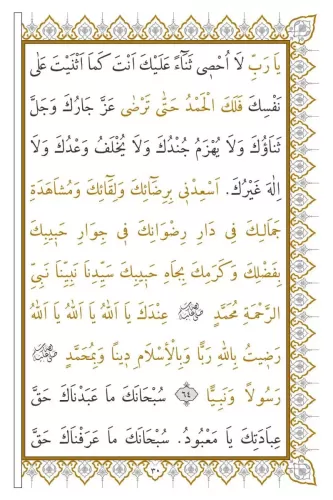 يَا رَبِّ لَا اُحْصِى ثَنَاءً عَلَيْكَ اَنْتَ كَمَا اَثْنَيْتَ عَلَى
نَفْسِكَ فَلَكَ الْحَمْدُ حَتّٰى تَرْضٰى عَزَّ جَارُكَ وَجَلَّ
ثَنَاؤُكَ وَلَا يُهْزَمُ جُنْدُكَ وَلَا يُخْلَفُ وَعْدُكَ وَلَا
اِلٰهَ غَيْرُكَ. اَسْعِدْنِى بِرِضَائِكَ وَلِقَائِكَ وَمُشَاهَدَةِ
جَمَالِكَ فِى دَارِ رِضْوَانِكَ فِى جِوَارِ حَبِيبِكَ
بِفَضْلِكَ وَكَرَمِكَ بِجَاهِ حَبِيبِكَ سَيِّدِنَا نَبِيِّنَا نَبِىِّ
الرَّحْمَةِ مُحَمَّدٍ ﷺ عِنْدَكَ يَا اَللهُ يَا اَللهُ يَا اَللهُ
رَضِيتُ بِاللهِ رَبًّا وَبِالْاِسْلَامِ دِينًا وَبِمُحَمَّدٍ ﷺ
رَسُولًا وَنَبِيًّا ٦٤ سُبْحَانَكَ مَا عَبَدْنَاكَ حَقَّ
عِبَادَتِكَ يَا مَعْبُودُ. سُبْحَانَكَ مَا عَرَفْنَاكَ حَقَّ
٣٠